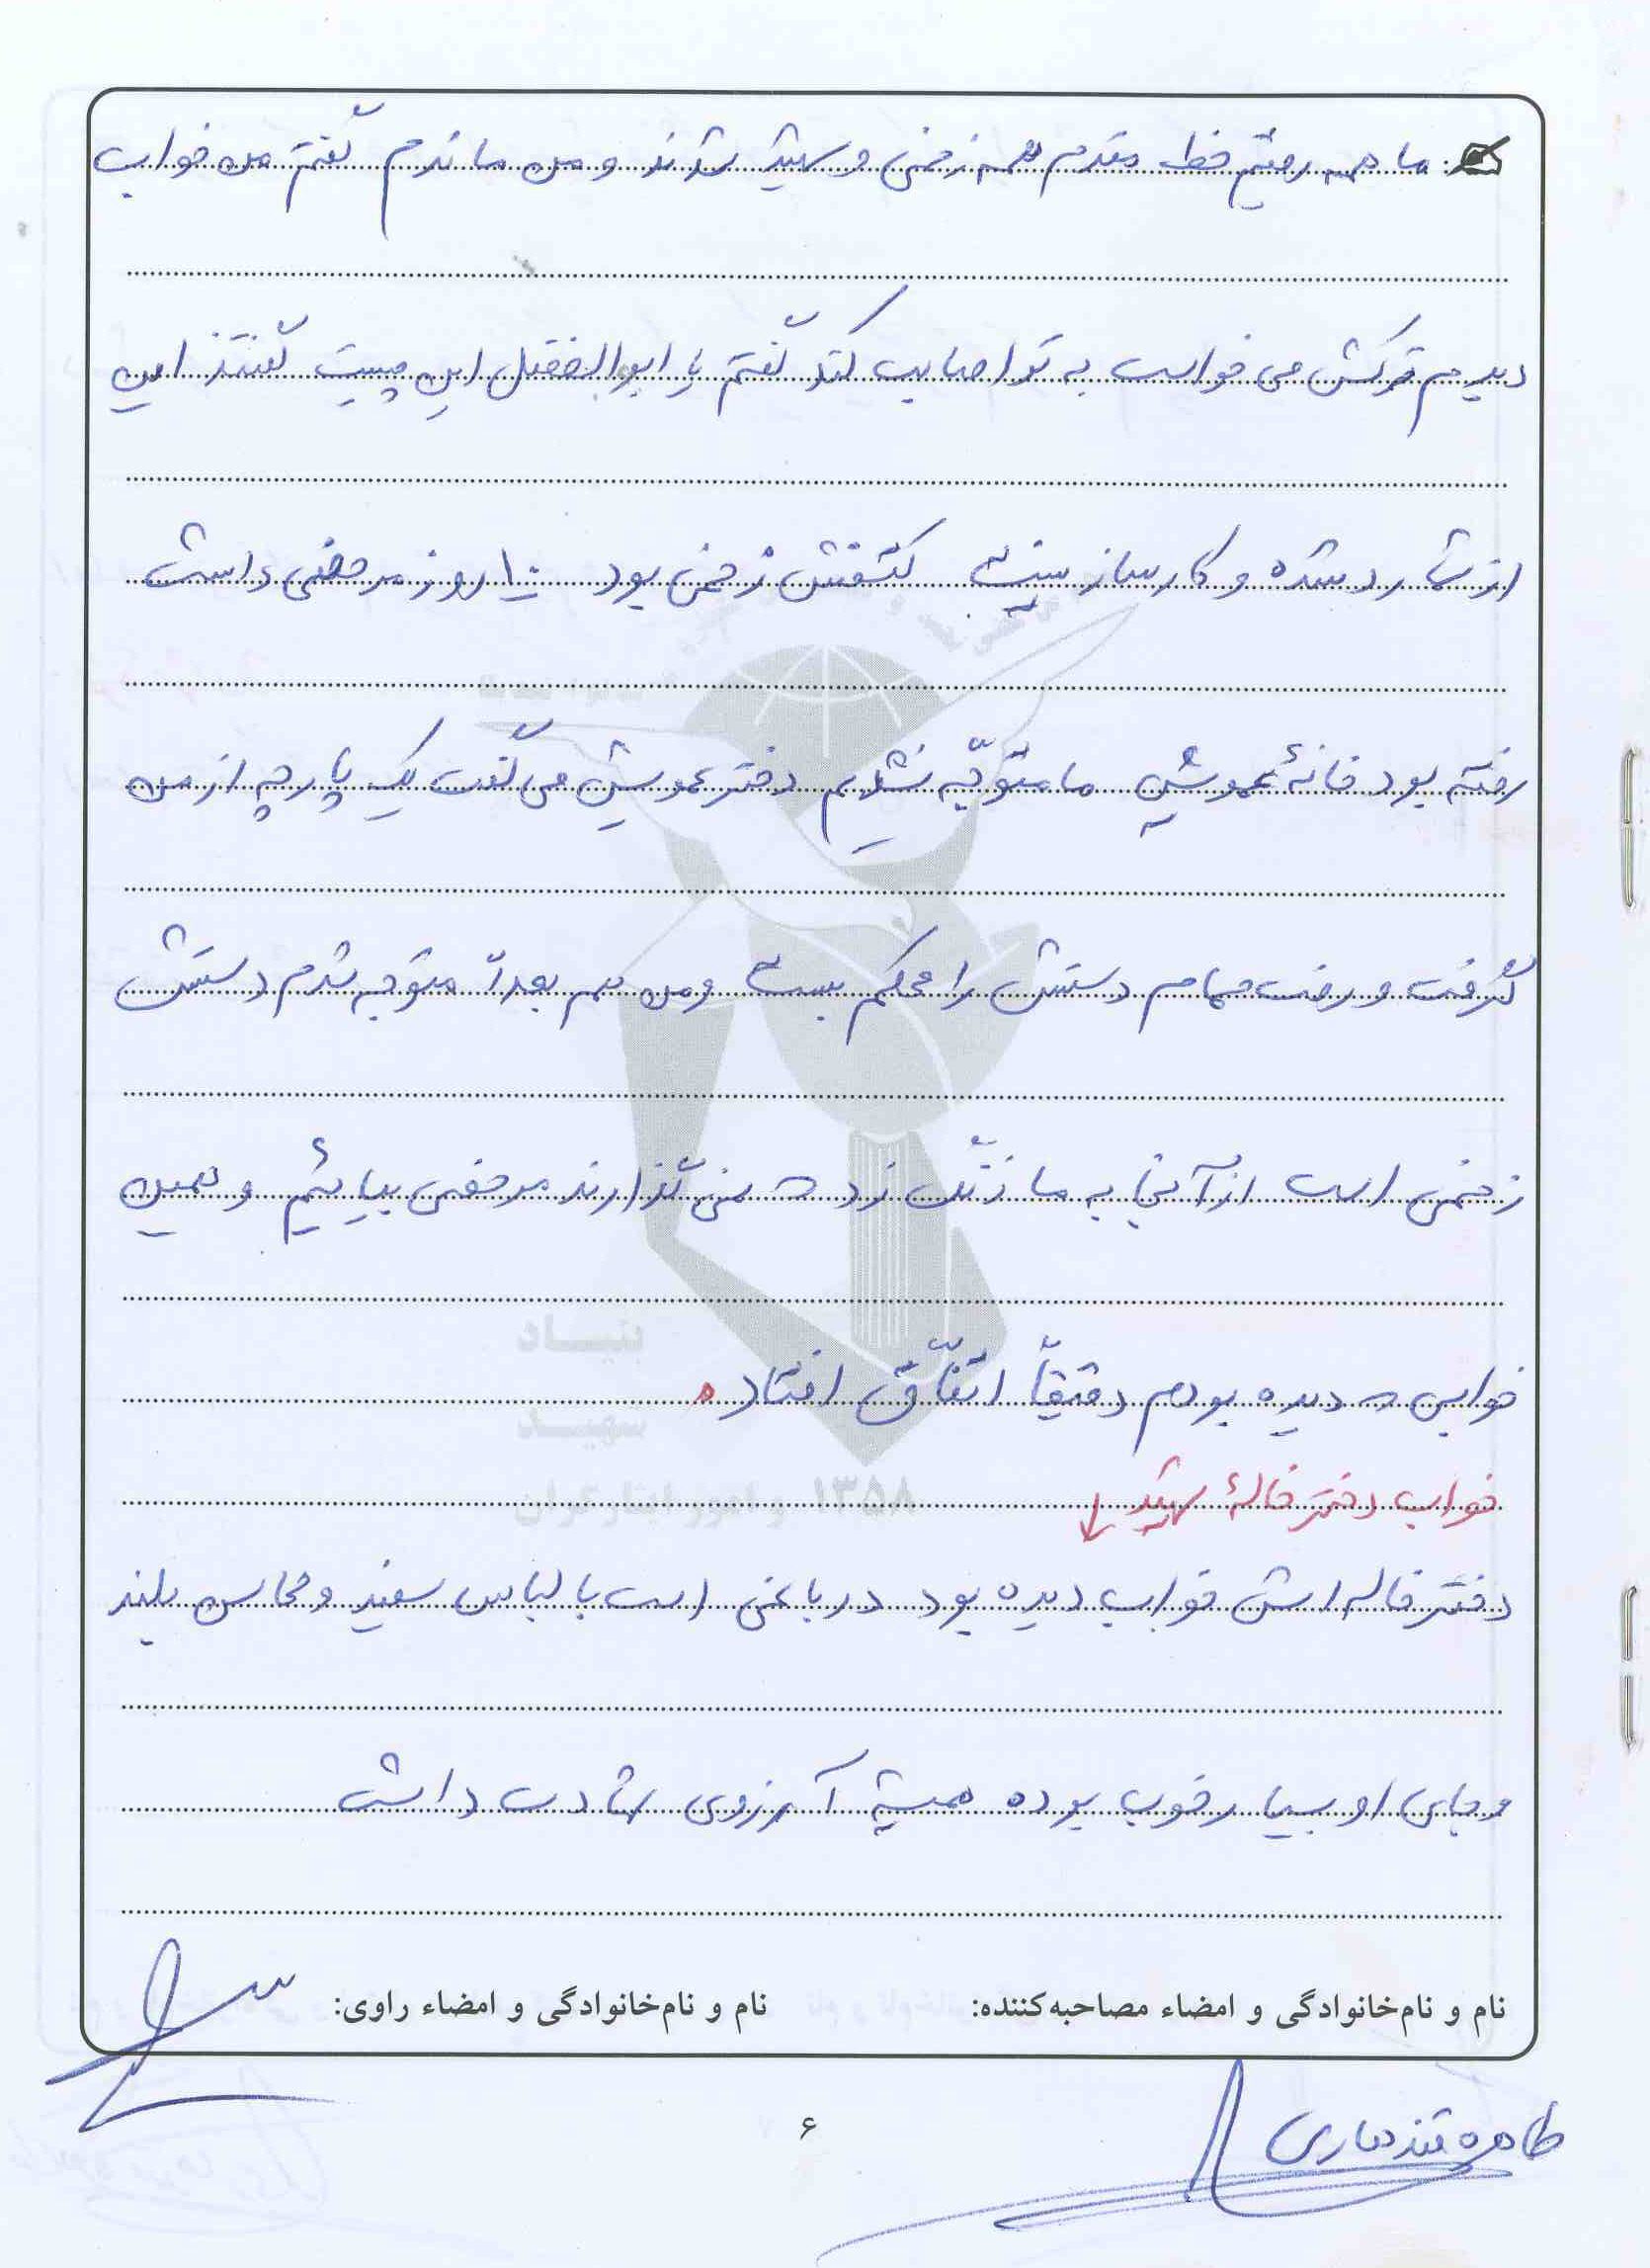 ما همه رفتیم خط مقدم همه زخمی و شهید شدند و من ماندم گفتم من خواب
دیدم ترکش می خواست به تو اصابت کند گفتم یا ابوالفضل این چیست گفتند این
از شما رد شده و کارساز نیست کتفش زخمی بود ۱۰ روز مرخصی داشت
رفته بود خانۀ عمویش ما متوجّه نشدیم دختر عمویش می گفت یک پارچه از من
گرفت و رفت حمام دستش را محکم بست و من هم بعداً متوجه شدم دستش
زخمی است از آنجا به ما زنگ زد که نمی گذارند مرخصی بیائیم و همین
خوابی که دیده بودم دقیقاً اتفّاق افتاد
خواب دختر خالۀ شهید
دختر خاله اش خواب دیده بود در باغی است با لباس سفید و محاسن بلند
و جای او بسیار خوب بوده همیشه آرزوی شهادت داشت
بنیاد
شهید
و امور ایثارگران ۱۳۵۸
نام و نام‌خانوادگی و امضاء مصاحبه‌کننده: نام و نام‌خانوادگی و امضاء راوی:
طاهره قندهاری
۶